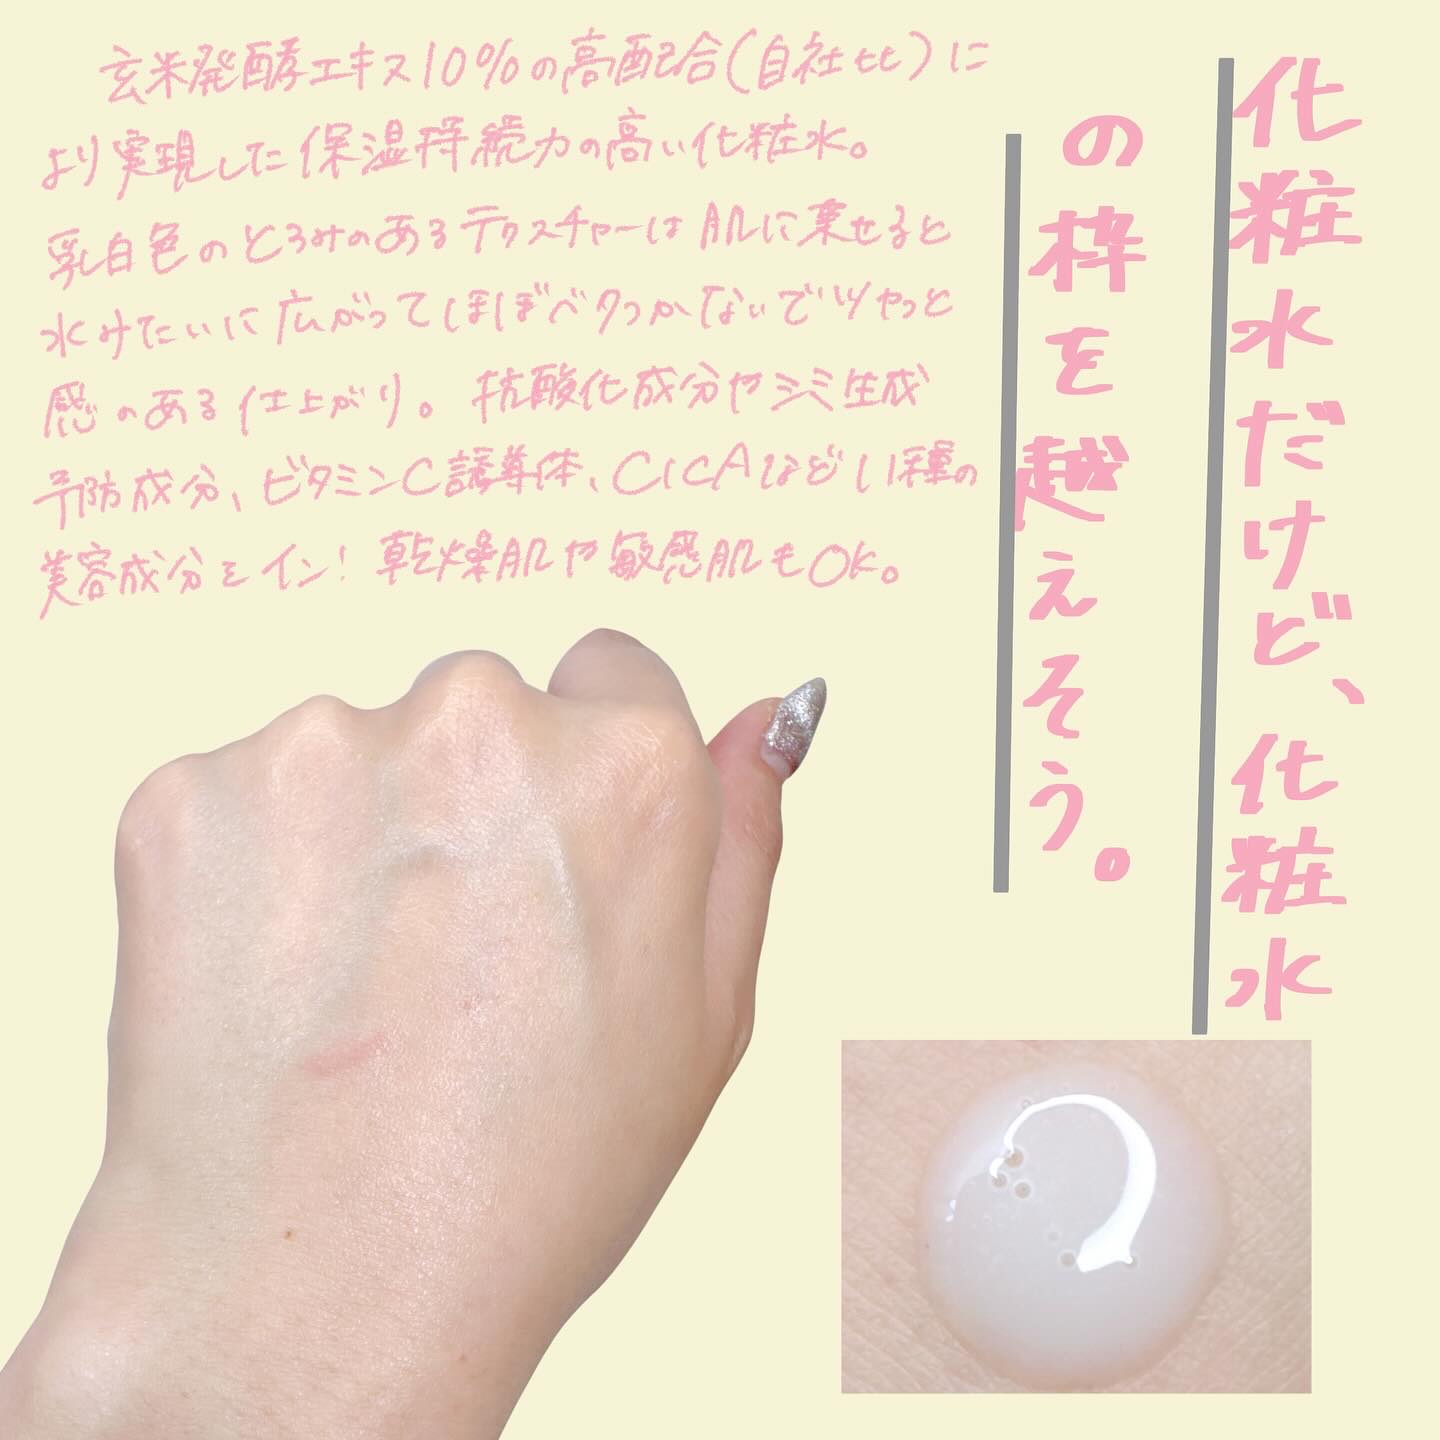 化粧水だけど、化粧水
の枠を越えそう。
玄米発酵エキス10%の高配合(自社比)に
より実現した保温持続力の高い化粧水。
乳白色のとろみのあるテクスチャーは肌に乗せると
水みたいに広がってほぼベタつかないでツヤっと
感のある仕上がり。抗酸化成分やシミ生成
予防成分、ビタミンC誘導体、CICAなど11種の
美容成分をイン!乾燥肌や敏感肌もOK。